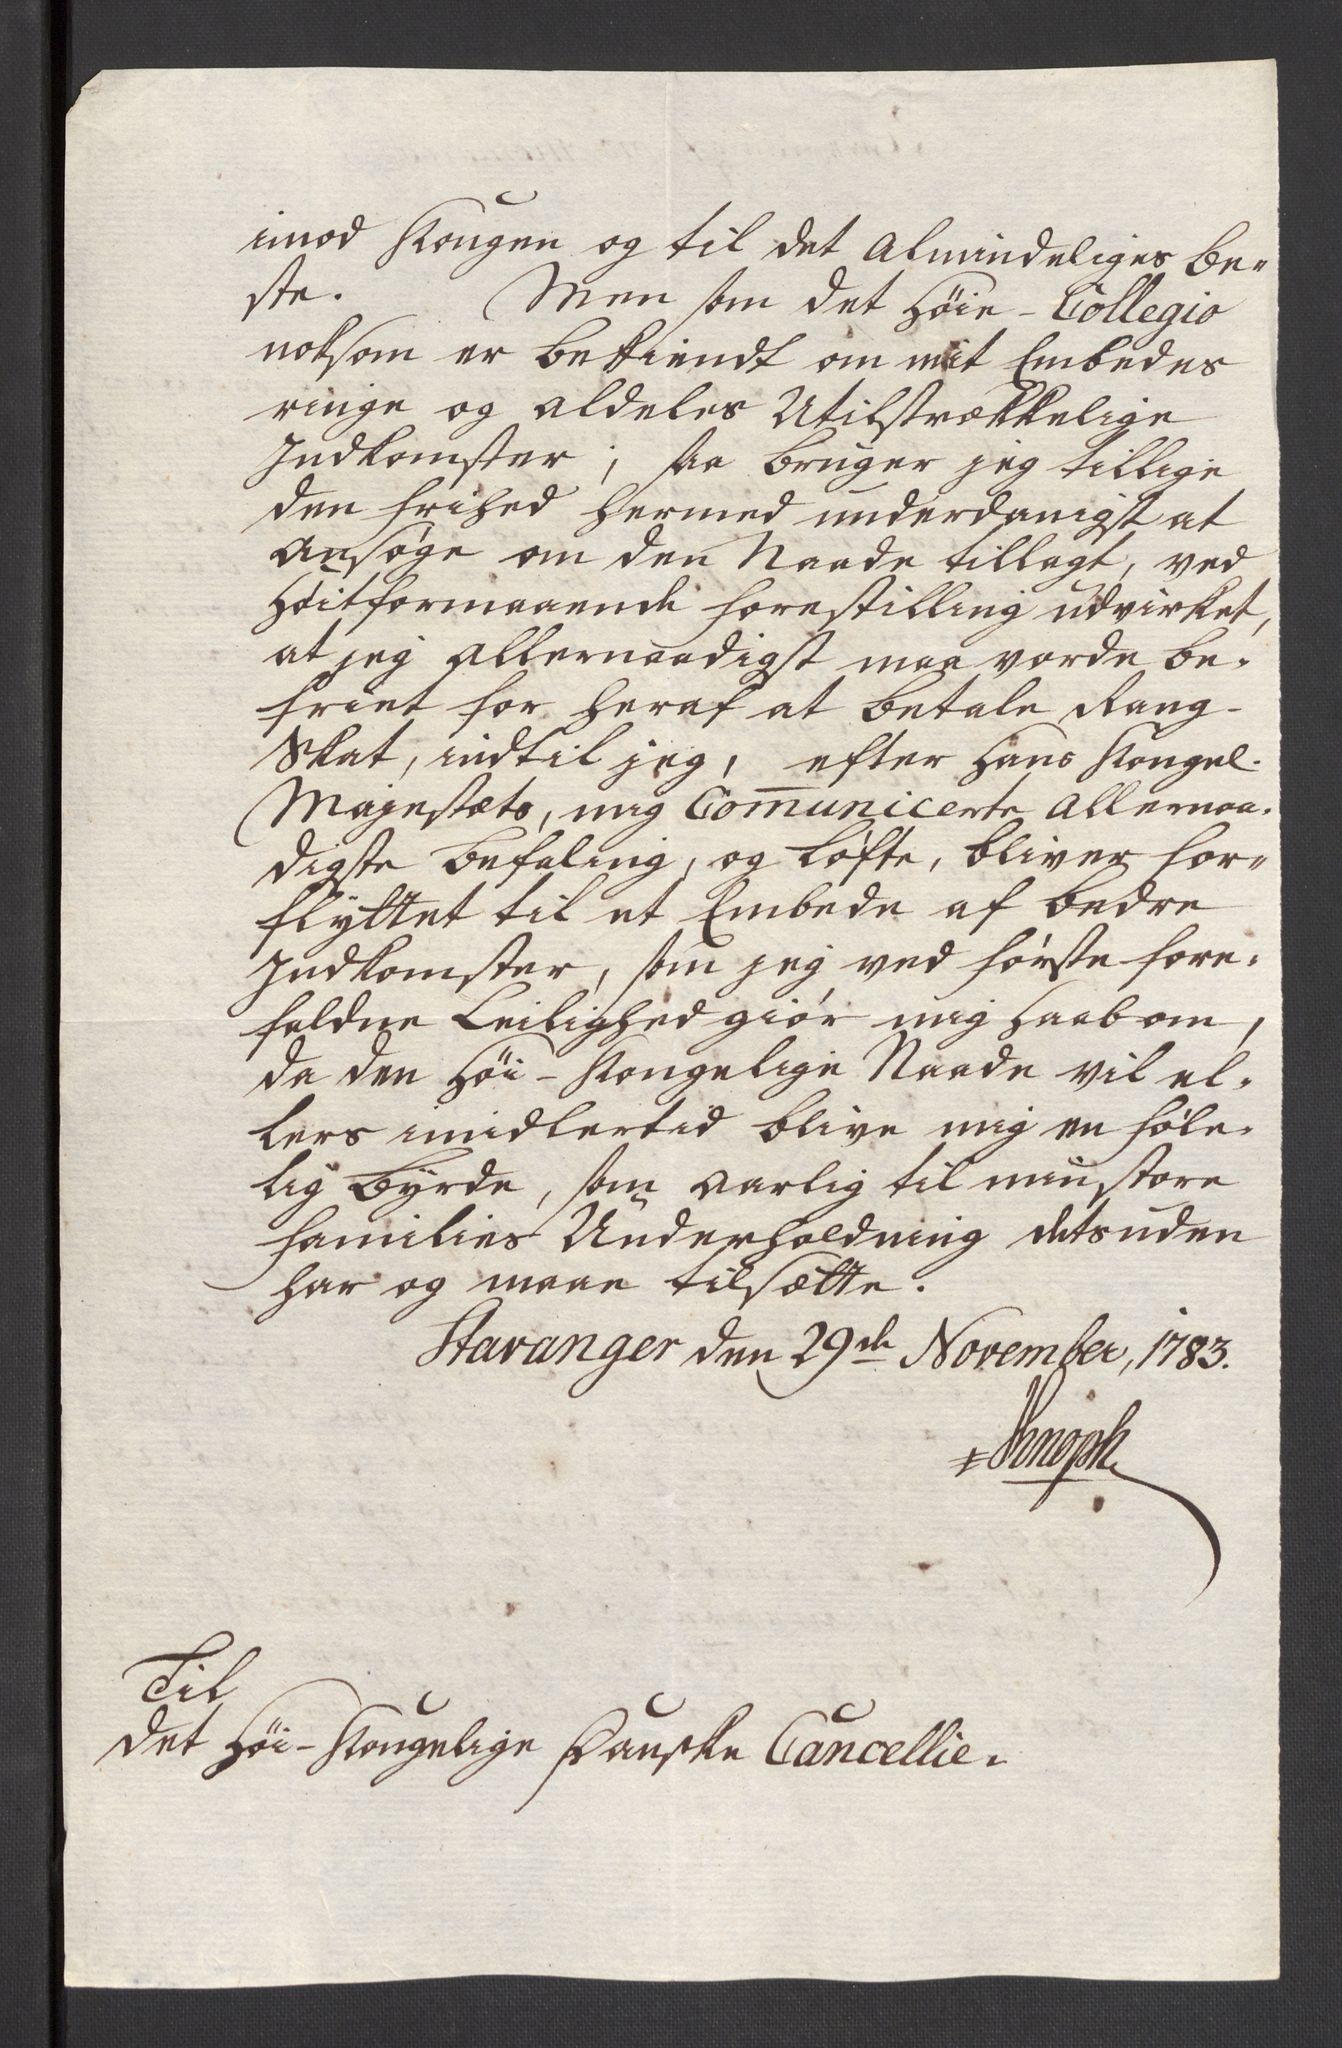 imod Kongen og til det Almindeliges be-
ste. Men som det Høie-Collegio
noksom er bekiendt om mit Embedes
ringe og aldeles Utilstrækkelige
Indkomster; saa bruger jeg tillige
den frihed hermed underdanigst at
Ansøge om den Naade tillagt, ved
Høitformaaende forestilling udvirket,
at jeg allernaadigst maa vorde be-
friet for heraf at betale Rang-
Skat, indtil jeg, efter Hans Kongel.
Majestæts, mig Com̅unicerte Allernaa-
digste befaling, og Løfte, bliver for-
flyttet til et Embede af bedre
Indkomster, som jeg ved første fore-
faldne Leilighed giør mig Haab om,
da den Høi-Kongelige Naade vil el-
lers imidlertid blive mig en føle-
lig Byrde, som aarlig til min store
families Underholdning detsuden
har og maae tilsætte.
Stavanger den 29de November, 1783.
Til
det Høi-Kongelige Danske Cancellie.